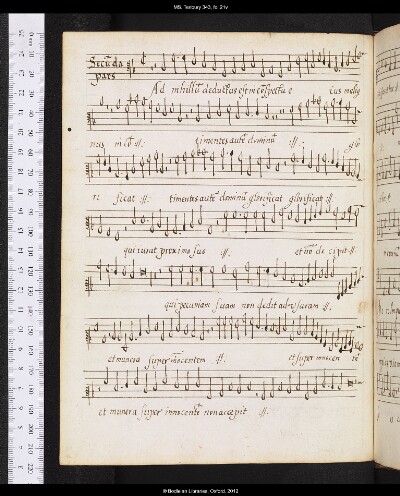 MS. Tenbury 343, fol. 21v
Secūda
pars
Ad nihilū deductus est in cōspectu e ius malig
nus in cō :||: timentes autē dominū :||: glo
ri ficat :||: timentes autē dominū glorificat glorificat :||:
qui iurat proximo suo :||: et nō de cipit :||:
qui pecuniam suam non dedit ad usuram :||:
et munera super inocentem :||: et super innocen tē
et munera super innocentē non accepit :||:
© Bodleian Libraries, Oxford, 2013